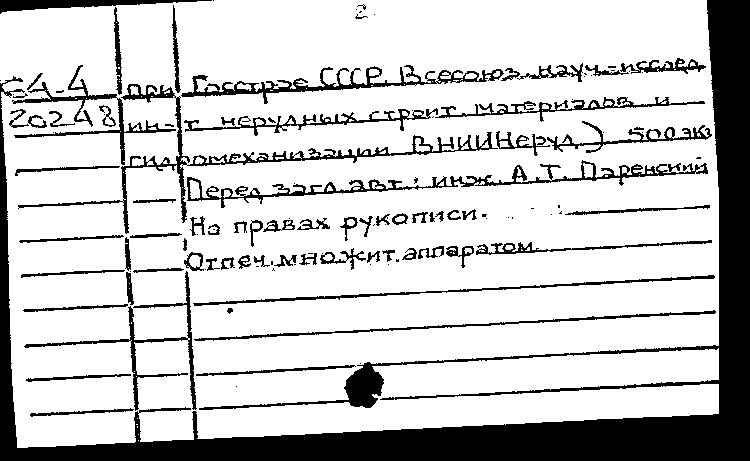 2
64-4 при Госстрое СССР. Всесоюз. науч.-исслед.
20248 ин-т нерудных строит. материалов и
гидромеханизации ВНИИНеруд.) 500 экз
Перед загл. авт.: инж. А.Т. Паренский
На правах рукописи.
Отпеч. множит. аппаратом.